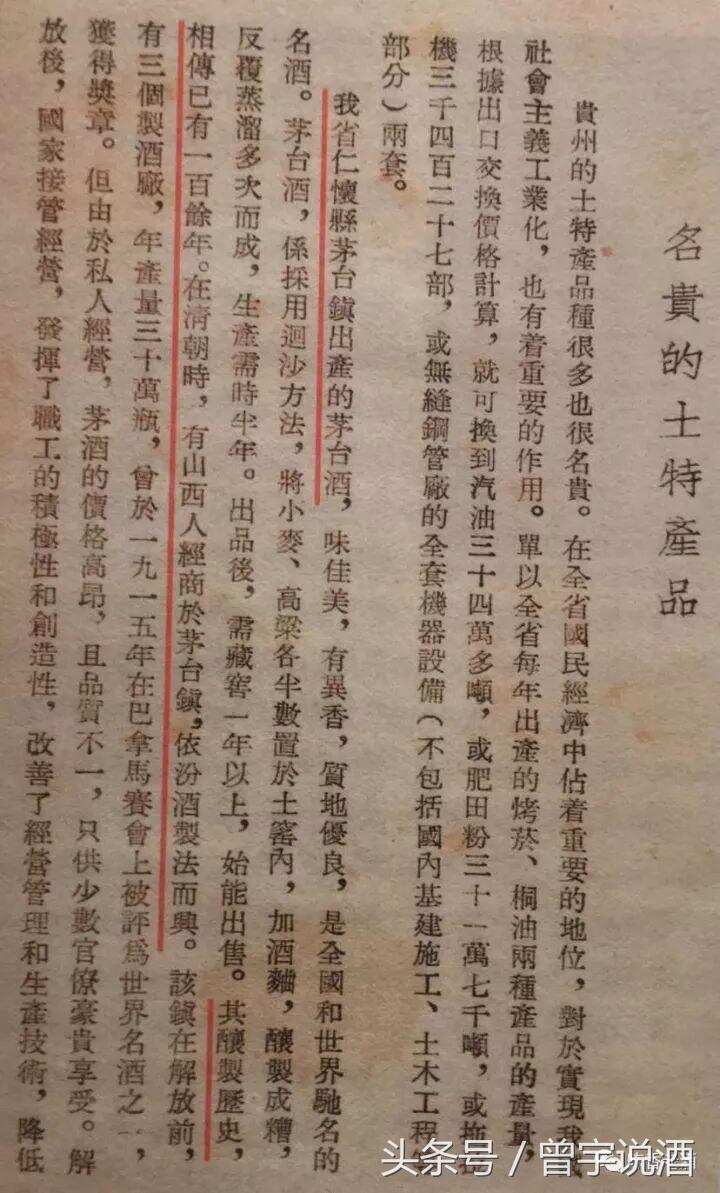 名貴的土特產品
貴州的土特產品種很多也很名貴。在全省國民經濟中佔着重要的地位，對於實現我
社會主義工業化，也有着重要的作用。單以全省每年出產的烤菸、桐油兩種產品的產量，
根據出口交換價格計算，就可換到汽油三十四萬多噸，或肥田粉三十一萬七千噸，或拖
機三千四百二十七部，或無縫鋼管廠的全套機器設備（不包括國內基建施工、土木工程
部分）兩套。
我省仁懷縣茅台鎮出產的茅台酒，味佳美，有異香，質地優良，是全國和世界馳名的
名酒。茅台酒，係採用迴沙方法，將小麥、高粱各半數置於土窖內，加酒麯，釀製成糟，
反覆蒸溜多次而成，生產需時半年。出品後，需藏窖一年以上，始能出售。其釀製歷史，
相傳已有一百餘年。在清朝時，有山西人經商於茅台鎮，依汾酒製法而興。該鎮在解放前，
有三個製酒廠，年產量三十萬瓶，曾於一九一五年在巴拿馬賽會上被評爲世界名酒之一，
獲得獎章。但由於私人經營，茅酒的價格高昂，且品質不一，只供少數官僚豪貴享受。解
放後，國家接管經營，發揮了職工的積極性和創造性，改善了經營管理和生產技術，降低
头条号／曾宇说酒